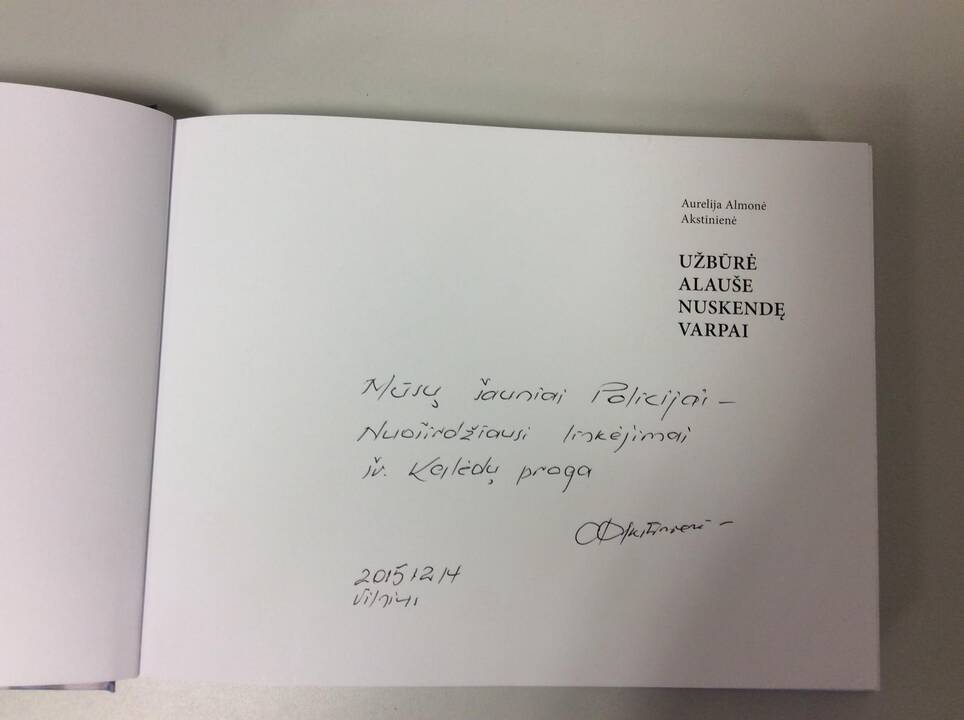 Aurelija Almonė
Akstinienė
UŽBŪRĖ
ALAUŠE
NUSKENDĘ
VARPAI
Mūsų šauniai Policijai –
Nuoširdžiausi linkėjimai
šv. Kalėdų proga
AAkstinienė –
2015 12 14
Vilnius